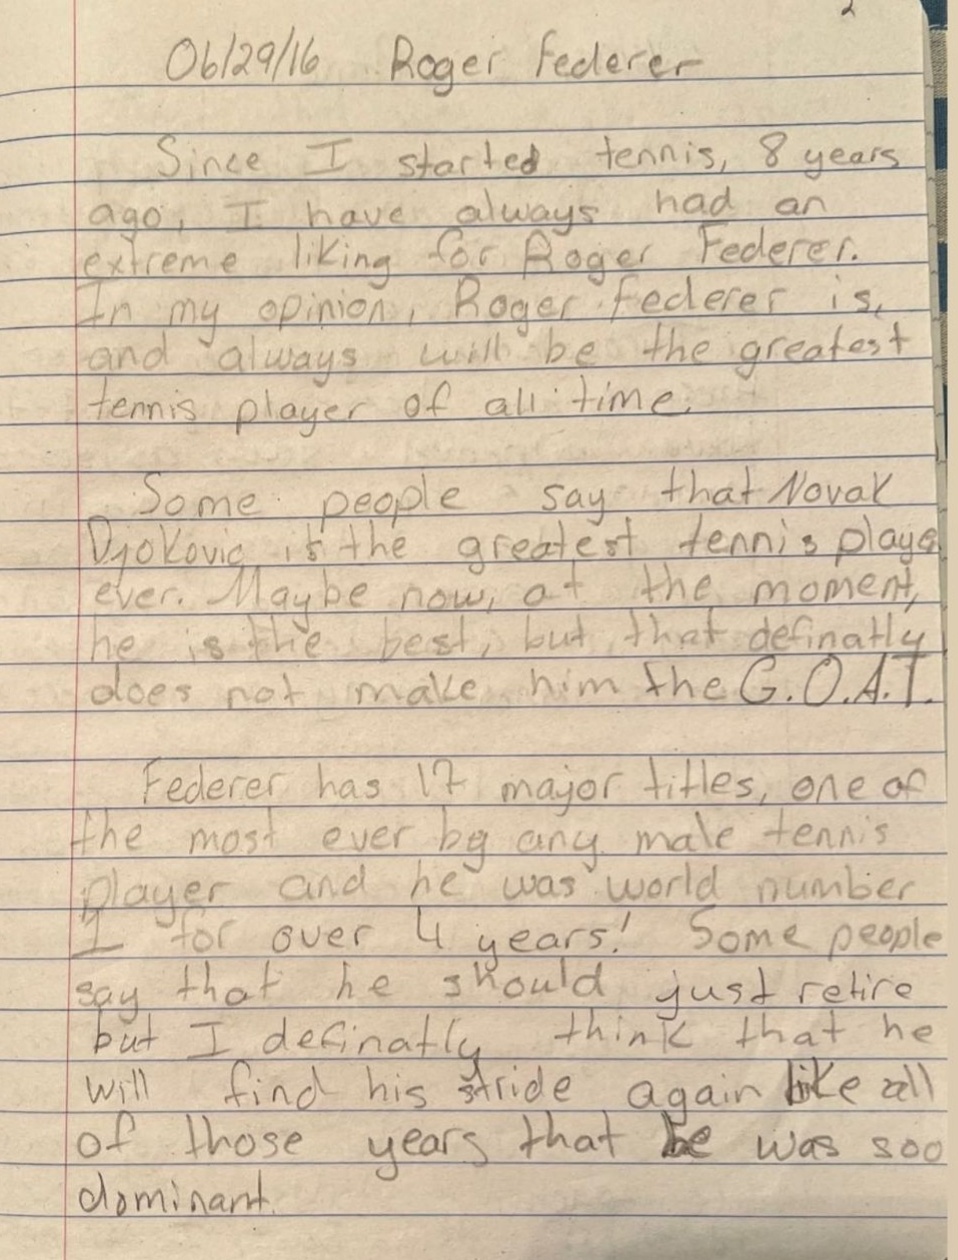 2
06/29/16 Roger Federer
Since I started tennis, 8 years
ago, I have always had an
extreme liking for Roger Federer.
In my opinion, Roger Federer is,
and always will be the greatest
tennis player of all time.
Some people say that Novak
Djokovic is the greatest tennis playe
ever. Maybe now, at the moment,
he is the best, but that definatly
does not make him the G.O.A.T.
Federer has 17 major titles, one of
the most ever by any male tennis
player and he was world number
1 for over 4 years! Some people
say that he should just retire
but I definatly think that he
will find his stride again like all
of those years that he was soo
dominant.